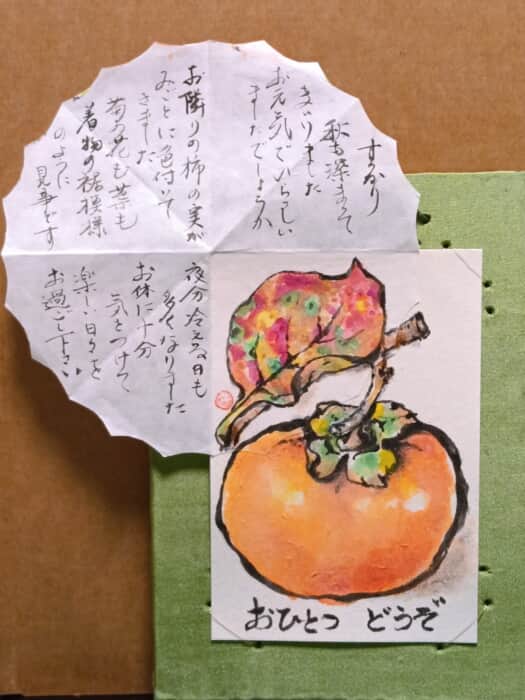 すかり
秋も深まって
まいりました
お元気でいらっしい
ましたでしょうか
お隣りの柿の実が
みごとに色付いて
きました
菊の花も葉も
着物の裾模様
のように
見事です
夜分冷える日も
多くなりました
お体に十分
気をつけて
楽しい日々を
お過ごし下さい
おひとつ どうぞ